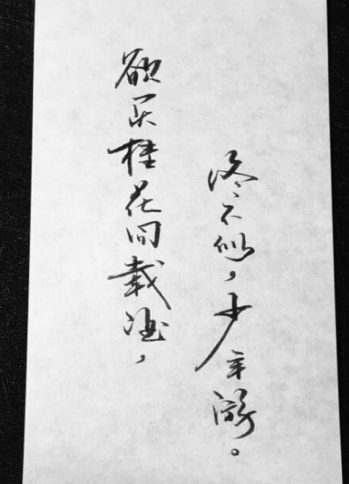 欲买桂花同載酒，
终不似，少年游。